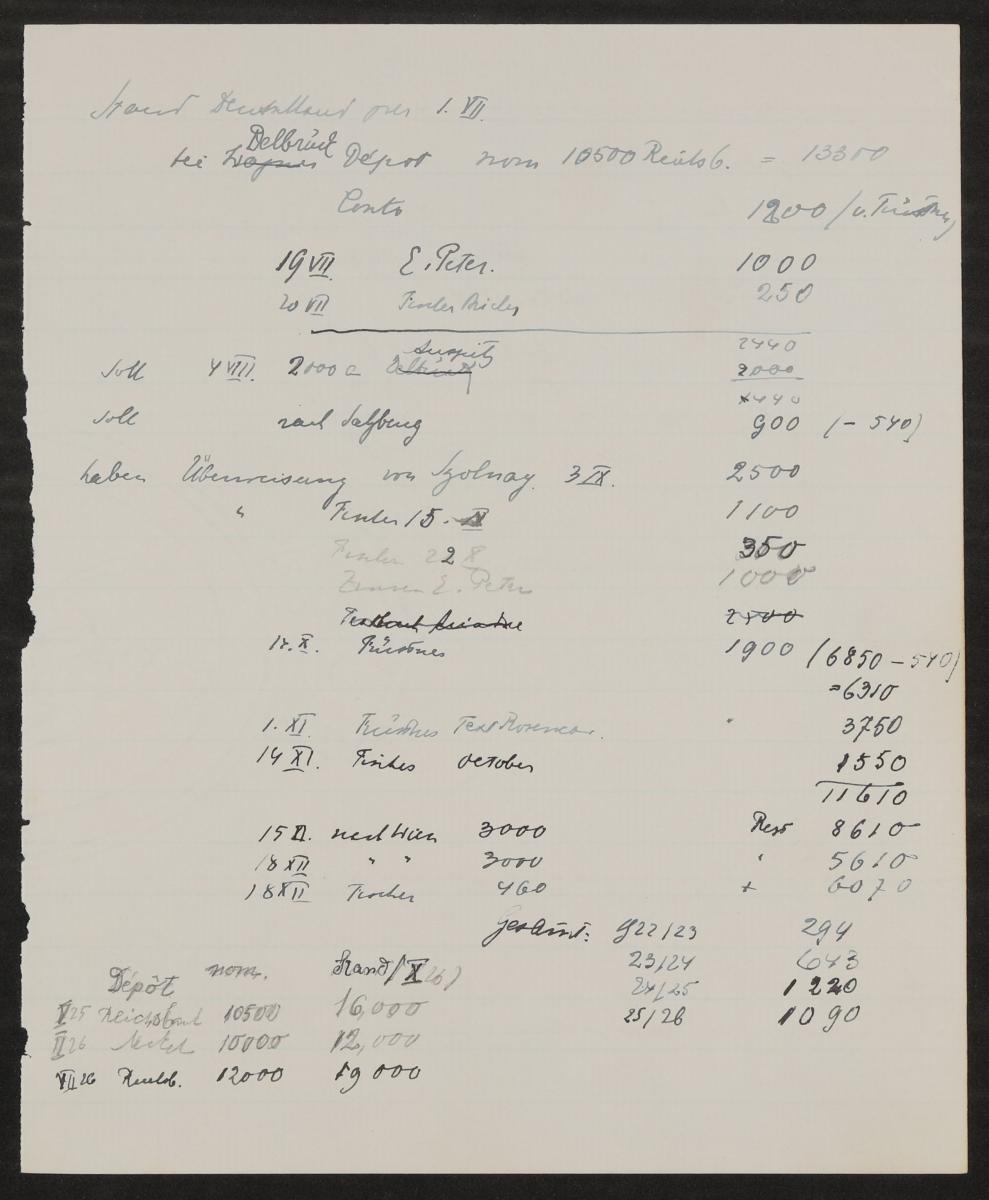 Stand Deutschland per 1. VII.
Delbrück
bei Dépot nom 10500 Reichsb. = 13300
Conto 1200 (v.
19 VII E. Peter. 1000
20 VII Fischer Bücher 250
2440
Soll 4 VIII. 2000 a Delbrück 2000
Auspitz
440
Soll nach Salzburg 900 (- 540)
haben Überweisung von Szolnay. 3 IX. 2500
" Fischer 15. IX 1100
Fischer 22 X 350
E. Peter 1000
X. 1900 (6850 - 540)
=6310
1. XI. 3750
14 XI. Fischer October 1550
11610
15 XI. nach Wien 3000 Rest 8610
18 XII " " 3000 " 5610
18 XII Fischer 460 + 6070
Gesamt: 922/23 294
23/24 643
24/25 1220
25/26 1090
Dépôt nom. Stand (X 26)
V 25 Reichsbank 10500 16,000
II 26 10000 12,000
VII 26 Reichsb. 12000 19 000